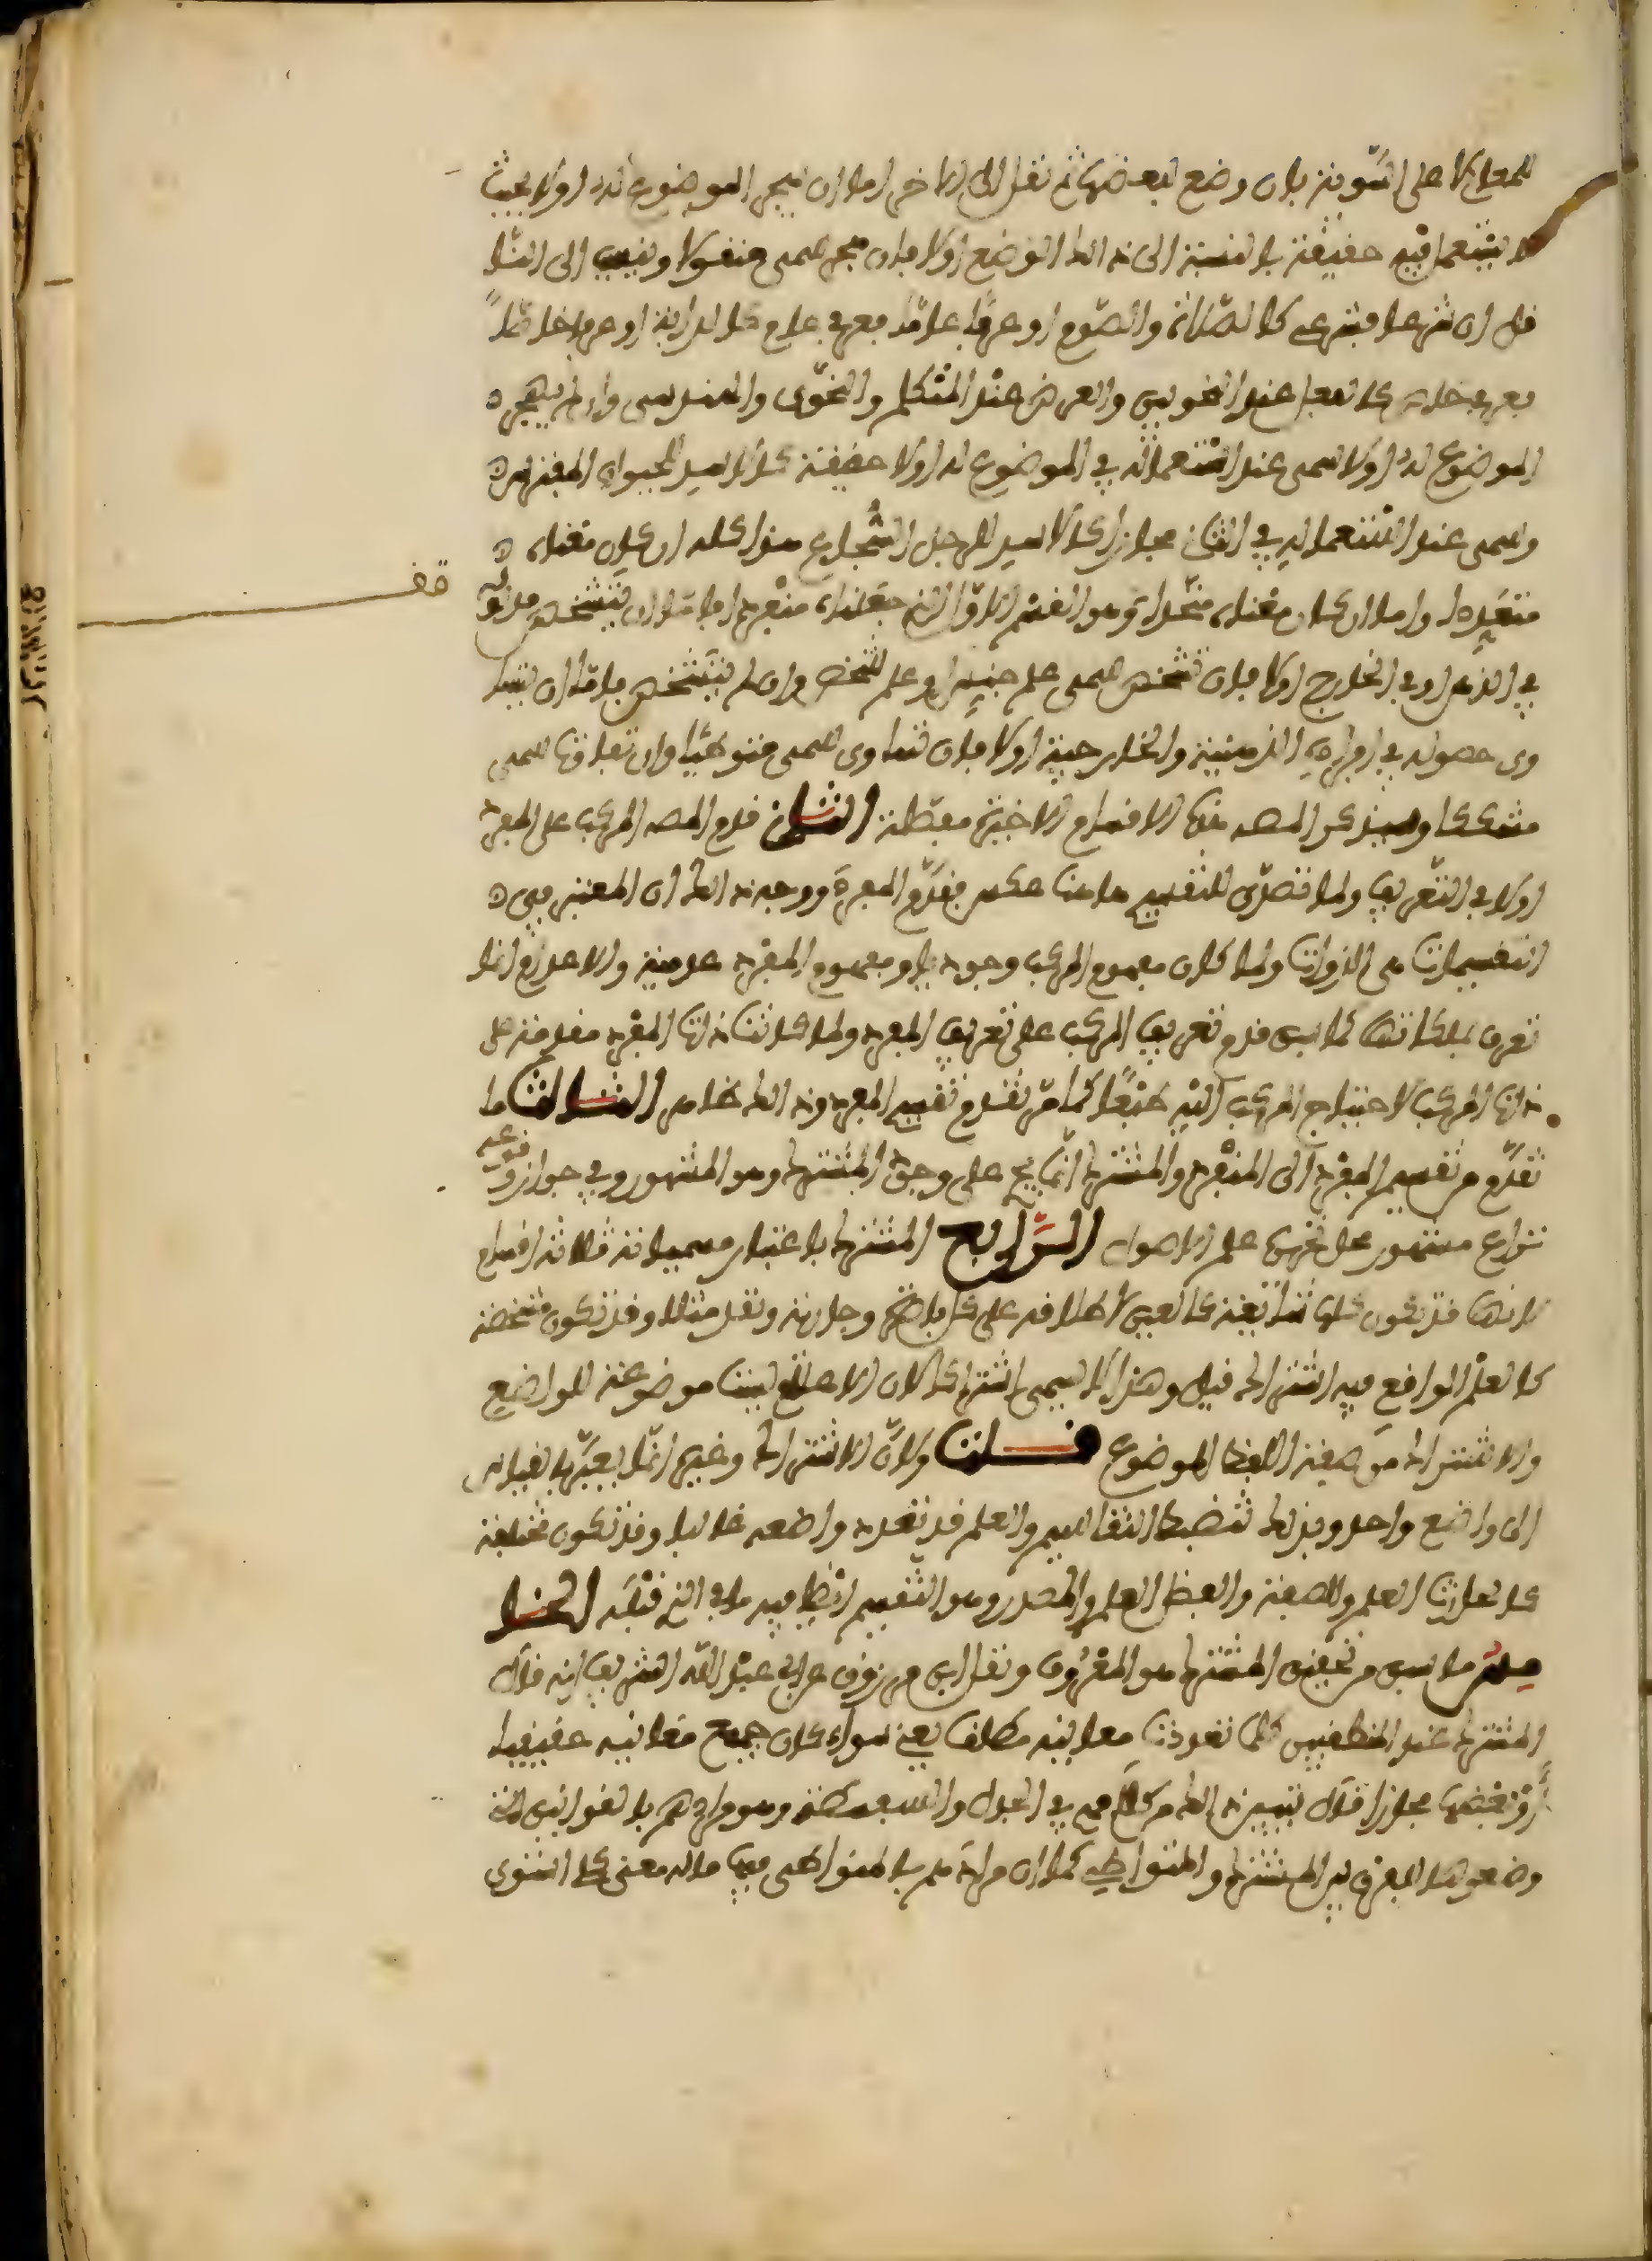 للمعاني لا على السوية بان وضع لبعضها ثم نقل الى الاخر اما ان يهجر الموضوع له اولا بحيث
لا يستعمل فيه حقيقة بالنسبة الى ذلك الوضع اولا فان هجر سمي منقولا وينسب الى الناقل
فان شرعا فشرعي كالصلاة والصوم او عرفا عاما فعرفي عام كالدابة او عرفا خاصا
فعرفي خاص كالفعل عند النحويين والعرض عند المتكلم والنحوي والمهندس وان لم يهجر
الموضوع له اولا سمي عند استعماله في الموضوع له اولا حقيقة كالاسد للحيوان المفترس
وسمي عند استعماله في الثاني مجازا كالاسد للرجل الشجاع هذا كله ان كان معناه
متعددا واما ان كان معناه متحدا وهو القسم الاول الذي جعلناه منفردا فاما ان يتشخص مدلوله
في الذهن او في الخارج اولا فان تشخص سمي علم جنس او علم شخص وان لم يتشخص فاما ان يتسا
وى حصوله في افراده الذهنية والخارجية اولا فان تساوى سمي متواطئا وان تفاوتا سمي
مشككا وسيذكر المص هذه الاقسام الاخيرة مفصلة الثاني قدم المص المركب على المفرد
اولا في التعريف ولما تصدى للتقسيم هاهنا عكس فقدم المفرد ووجه ذلك ان المعتبر في
التقسيمات هي الذوات ولما كان مفهوم المركب وجوديا ومفهوم المفرد عدمي والاعدام انما
تعرف بملكاتها كما سبق قدم تعريف المركب على تعريف المفرد ولما كانت ذات المفرد مقدمة على
ذات المركب لاحتياج المركب اليه طبعا كما مر تقدم تقسيم المفرد وذلك ظاهر الثالث ما
تقدم من تقسيم المفرد الى المنفرد والمشترك انما يصح على وجود المشترك وهو المشهور وفي جوازه ووقوعه
نزاع مشهور محل تحريره علم الاصول الرابع المشترك باعتبار مسمياته ثلاثة اقسام
لانها قد تكون كلها شائعة كالعين لاطلاقه على كل باصرة وجارية ونقد مثلا وقد تكون متشخصة
كالعلم الواقع فيه اشتراك قيل وهذا لا يسمى اشتراكا لان الاعلام ليست موضوعة للواضع
والاشتراك من صفة اللفظ الموضوع قلت ولان الاشتراك وغيره انما يعتبر بالقياس
الى واضع واحد وبذلك تنضبط التقاسيم والعلم قد تعدد واضعه غالبا وقد تكون مختلفة
كالحارث العلم والصفة والفضل العلم والمصدر وهو التقسيم ايضا فيه ما في الذي قبله الخا
مس ما سبق من تحقيق المشترك هو المعروف ونقل ابن مرزوق عن ابي عبد الله الشريف انه قال
المشترك عند المنطقيين كلما تعددت معانيه مطلقا يعني سواء كان جميع معانيه حقيقيا
او بعضها مجازا قال تبيين ذلك من كلامهم في الجدل والسفسطة وهو مرادهم بالقوانين التي
وضعوها للفرق بين المشترك والمتواطئ كما ان مرادهم بالمتواطئ فيها ماله معنى كلي استوى